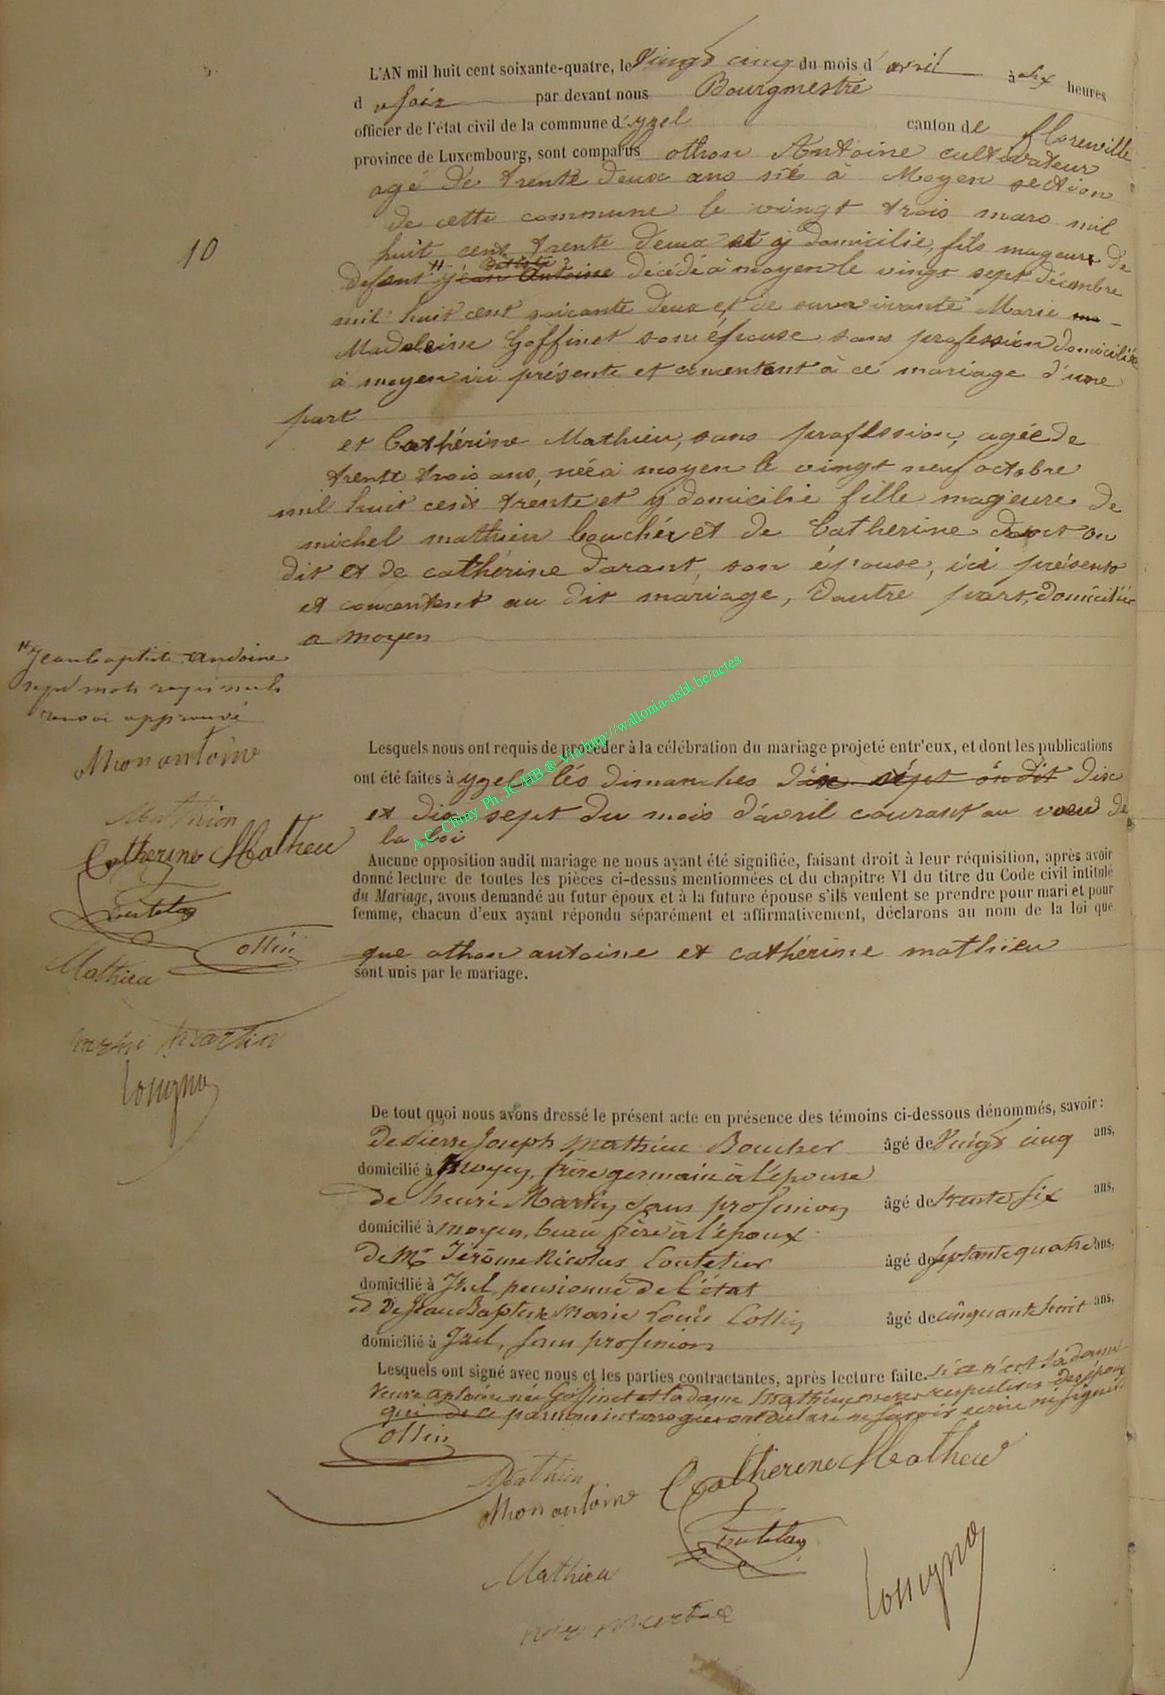 L'AN mil huit cent soixante-quatre, le vingt cinq du mois d'avril à six heures
d u soir par devant nous Bourgmestre
officier de l'état civil de la commune d'yzel canton de florenville
province de Luxembourg, sont comparus othon Antoine cultivateur
agé de trente deux ans né à Moyen section
de cette commune le vingt trois mars mil
10
huit cent trente deux et y domicilié, fils mageur de
defunt # jean Antoine décédé à moyen le vingt sept décembre
mil huit cent soixante deux et de survivante Marie
Madeleine Goffinet son épouse sans profession domiciliée
à moyen ici présente et consentant à ce mariage d'une
part
et Cathérine Mathieu, sans profession, agée de
trente trois ans, née à moyen le vingt neuf octobre
mil huit cent trente et y domicilié fille mageure de
michel mathieu bouchér et de Catherine
dit et de cathérine darant, son épouse, ici présents
et consentent au dit mariage, dautre part, domiciliés
a moyen
# jean baptiste antoine
sept mots rayés nuls
renvoi approuvé
Othon antoine
Mathieu
Catherine Matheu
Mathieu
Collin
henri martin
A.C. Chiny Ph. JC/HB ® Via http://wallonia-asbl.be/actes
Lesquels nous ont requis de procéder à la célébration du mariage projeté entr'eux, et dont les publications
ont été faites à yzel les dimanches dix sept on dit dix
et dix sept du mois d'avril courant au voeu de
la loi
Aucune opposition audit mariage ne nous ayant été signifiée, faisant droit à leur réquisition, après avoir
donné lecture de toutes les pièces ci-dessus mentionnées et du chapitre VI du titre du Code civil intitulé
du Mariage, avons demandé au futur époux et à la future épouse s'ils veulent se prendre pour mari et pour
femme, chacun d'eux ayant répondu séparément et affirmativement, déclarons au nom de la loi que
que othon antoine et cathérine mathieu
sont unis par le mariage.
De tout quoi nous avons dressé le présent acte en présence des témoins ci-dessous dénommés, savoir :
de Pierre Joseph Mathieu Boucher âgé de Vingt cinq ans,
domicilié à Moyen, frère germain à l'épouse
de henri Martin sans profession âgé de trente six ans,
domicilié à moyen, beau frère à l'époux
de Mr Jérôme Nicolas âgé de septante quatre ans,
domicilié à Izel, pensionné de l'état
et de Jean Baptiste Marie Louis Collin âgé de cinquante huit ans,
domicilié à Izel, sans profession
Lesquels ont signé avec nous et les parties contractantes, après lecture faite. si ce n'est la dame
veuve antoine née Goffinet et la dame Mathieu mères respectives des époux
qui de ce par nous interrogées ont déclaré ne savoir écrire ni signer
Collin
Mathieu
Othon antoine Catherine Matheu
Mathieu